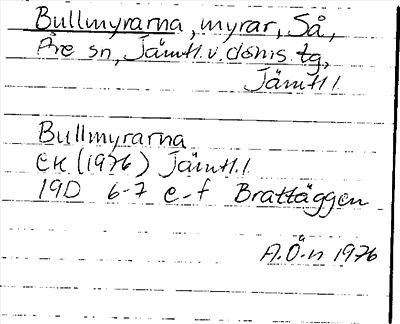 Bullmyrarna, myrar, Så,
Åre sn, Jämtl. v. doms. tg,
Jämtl l.
Bullmyrarna
EK (1976) Jämtl. l.
19D 6-7 e-f Brattäggen
A.Ö-n 1976